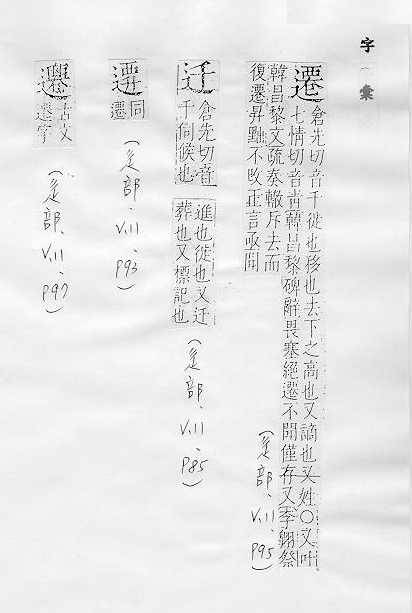 字彙
遷 倉先切音千徙也移也去下之高也又謫也又姓○又叶
七情切音靑韓昌黎碑辭畏塞絕遷不聞僅存又李翱祭
韓昌黎文疏奏輙斥去而
復遷昇黜不改正言亟聞
(辵部、V.11、P95)
迁 倉先切音
千伺候也
進也徙也又迁
葬也又標記也
(辵部、V.11、P85)
同
遷
(辵部、V.11、P93)
古文
遷字
(辵部、V.11、P97)